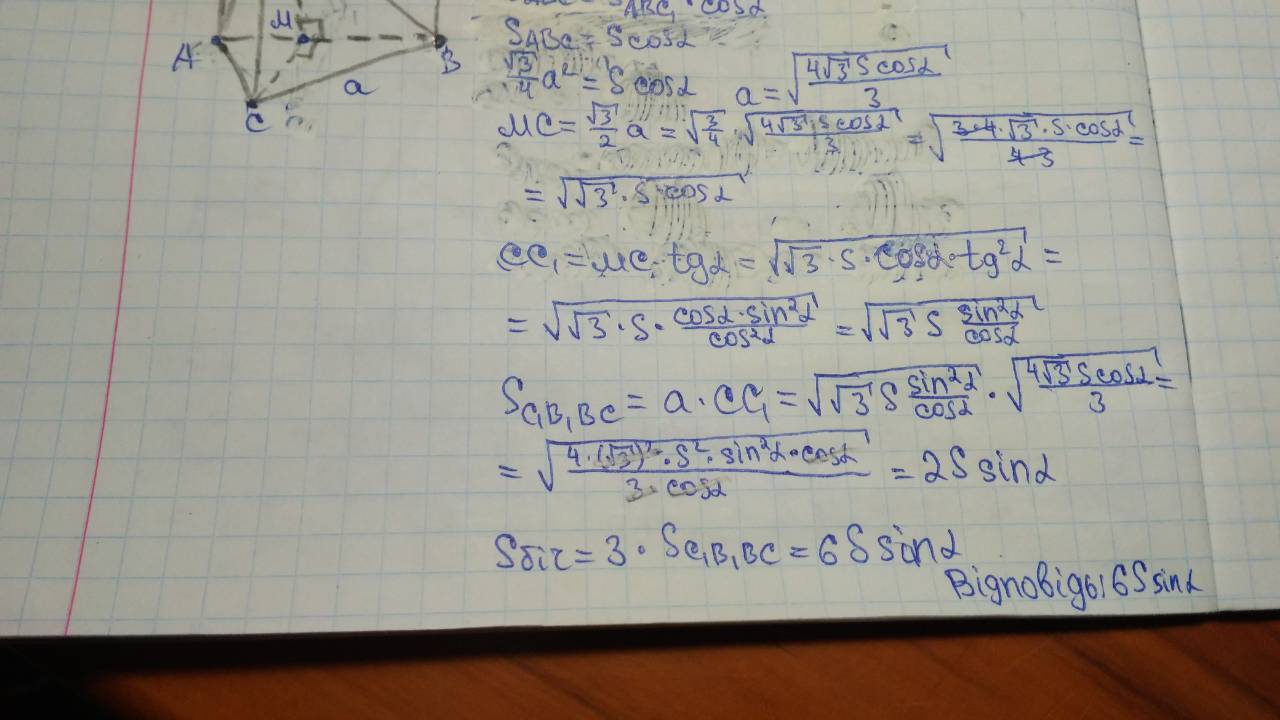 S_ABC₁ · cosα
M
A
B
a
C
S_ABC = S cosα
√3/4 a² = S cosα a = √(4√3 S cosα / 3)
MC = √3/2 a = √(3/4) · √(4√3 · S cosα / 3) = √(3·4·√3 · S · cosα / 4·3) =
= √(√3 · S · cosα)
CC₁ = MC · tgα = √(√3 · S · cosα · tg²α) =
= √(√3 · S · cosα · sin²α / cos²α) = √(√3 S sin²α / cosα)
S_C₁B₁BC = a · CC₁ = √(√3 S sin²α / cosα) · √(4√3 S cosα / 3) =
= √(4 · (√3)² · S² · sin²α · cosα / 3 · cosα) = 2S sinα
Sбіч = 3 · S_C₁B₁BC = 6S sinα
Відповідь: 6S sinα